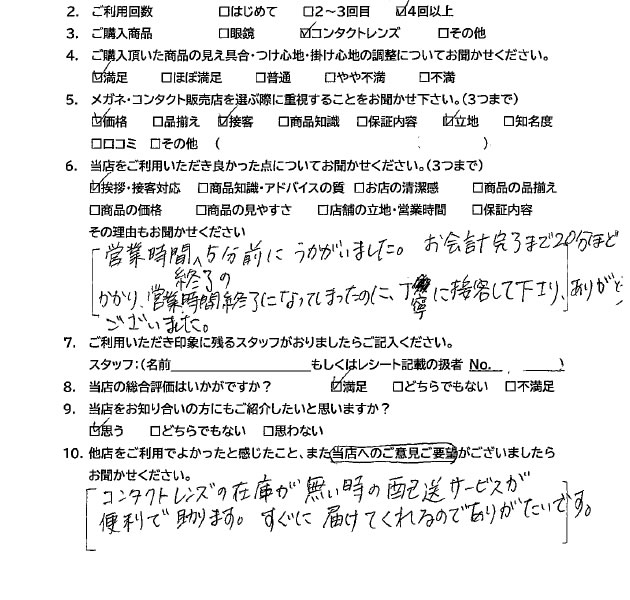 2. ご利用回数 □はじめて □2～3回目 ☑4回以上
3. ご購入商品 □眼鏡 ☑コンタクトレンズ □その他
4. ご購入頂いた商品の見え具合・つけ心地・掛け心地の調整についてお聞かせください。
☑満足 □ほぼ満足 □普通 □やや不満 □不満
5. メガネ・コンタクト販売店を選ぶ際に重視することをお聞かせ下さい。(3つまで)
☑価格 □品揃え ☑接客 □商品知識 □保証内容 ☑立地 □知名度
□口コミ □その他 ( )
6. 当店をご利用いただき良かった点についてお聞かせください。(3つまで)
☑挨拶・接客対応 □商品知識・アドバイスの質 □お店の清潔感 □商品の品揃え
□商品の価格 □商品の見やすさ □店舗の立地・営業時間 □保証内容
その理由もお聞かせください
営業時間終了の5分前にうかがいました。お会計完了まで20分ほど
かかり、営業時間終了になってしまったのに、丁寧に接客して下さり、ありがとう
ございました。
7. ご利用いただき印象に残るスタッフがおりましたらご記入ください。
スタッフ:(名前 もしくはレシート記載の扱者 No. )
8. 当店の総合評価はいかがですか? ☑満足 □どちらでもない □不満足
9. 当店をお知り合いの方にもご紹介したいと思いますか?
☑思う □どちらでもない □思わない
10. 他店をご利用でよかったと感じたこと、また当店へのご意見ご要望がございましたら
お聞かせください。
コンタクトレンズの在庫が無い時の配送サービスが
便利で助ります。すぐに届けてくれるのでありがたいです。